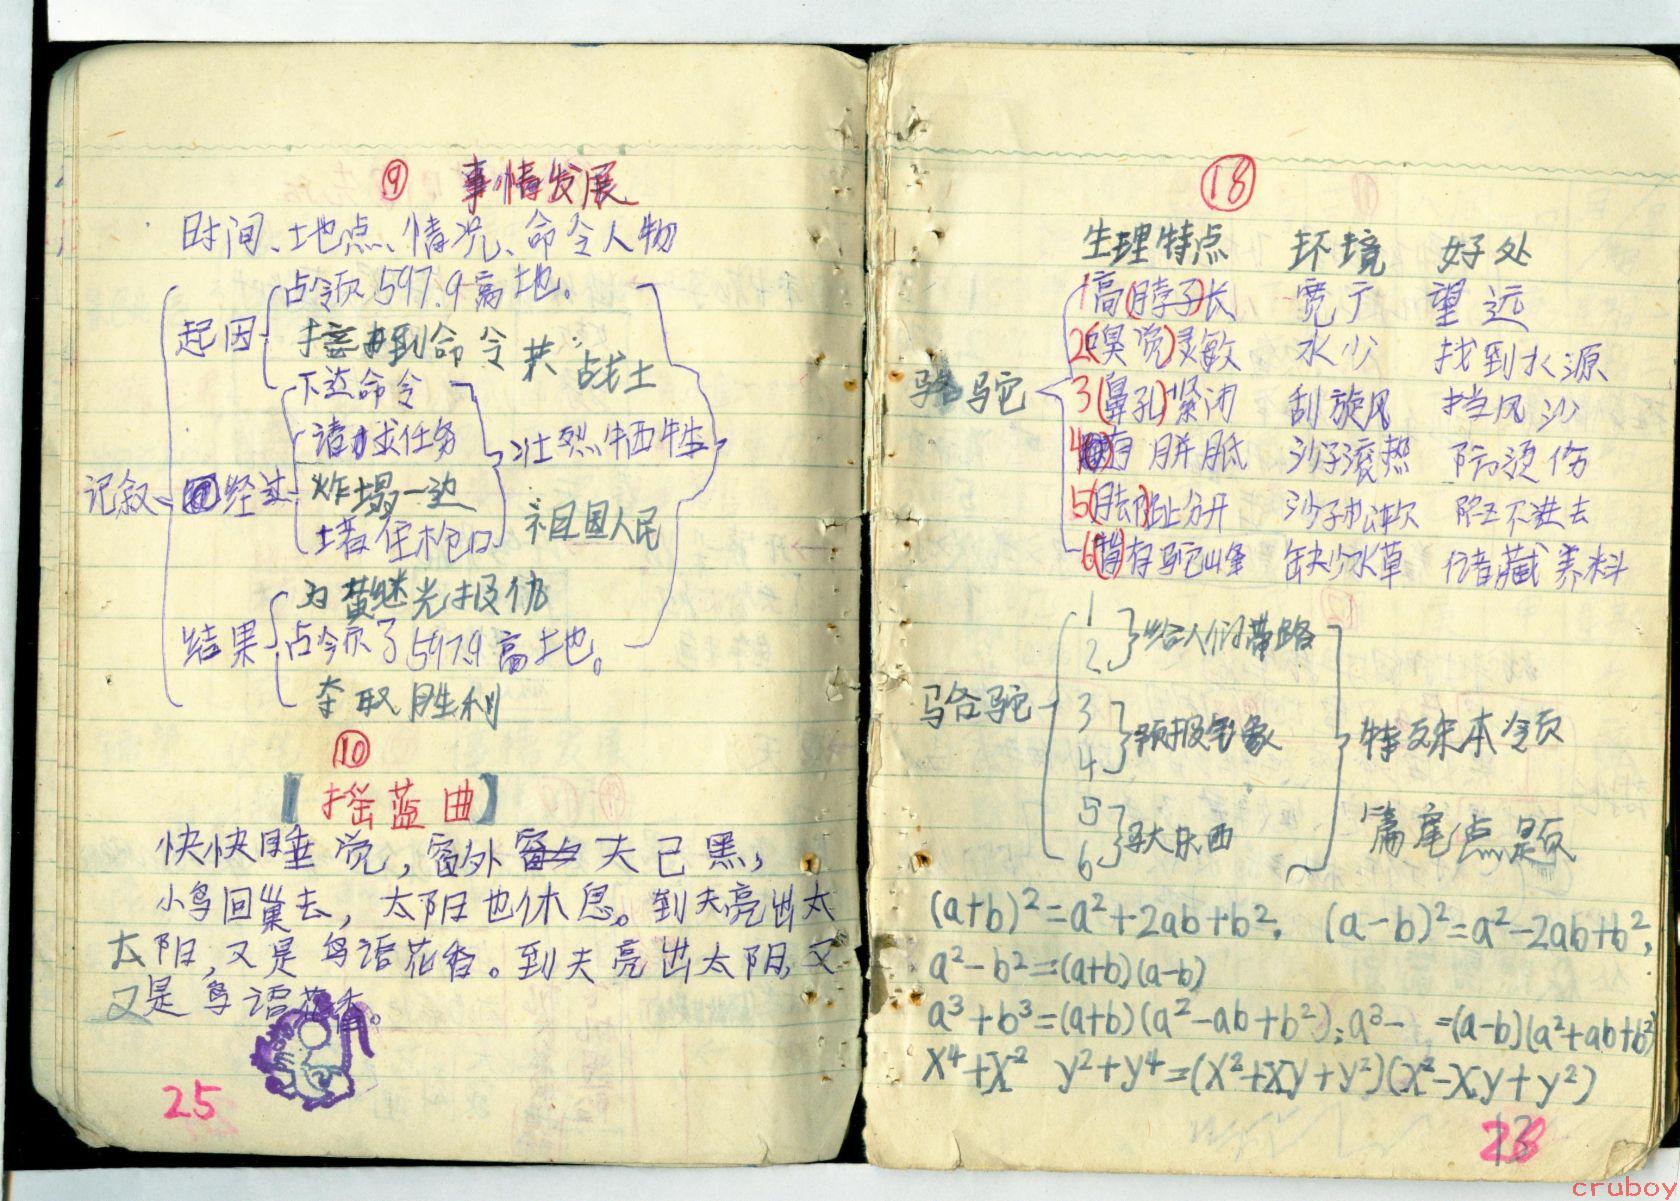 ⑨ 事情发展
时间、土地点、情况、命令人物
占领 597.9高地。
起因
接到命令 共 战士
下达命令
请求任务 壮烈牺牲
记叙 经过
炸塌一边
堵住枪口 祖国人民
为黄继光报仇
结果 占领了597.9高地。
夺取胜利
⑩
【摇蓝曲】
快快睡觉,窗外 天已黑,
小鸟回巢去,太阳也休息。到天亮出太
太阳,又是鸟语花香。到天亮出太阳,又
又是鸟语花香。
25
⑱
生理特点 环境 好处
1高(脖子)长 宽广 望远
2(嗅觉)灵敏 水少 找到水源
骆驼
3(鼻孔)紧闭 刮旋风 挡风沙
4有胼胝 沙子滚热 防烫伤
5( )趾分开 沙子松软 陷不进去
6(背)有驼峰 缺少水草 储藏养料
1
2 给人们带路
骆驼
3
4 预报气象 特殊本领
5
6 驮东西 篇尾点题
(a+b)²=a²+2ab+b², (a-b)²=a²-2ab+b²,
a²-b²=(a+b)(a-b)
a³+b³=(a+b)(a²-ab+b²);a³- =(a-b)(a²+ab+b²)
x⁴+x² y²+y⁴=(x²+xy+y²)(x²-xy+y²)
13
cruboy